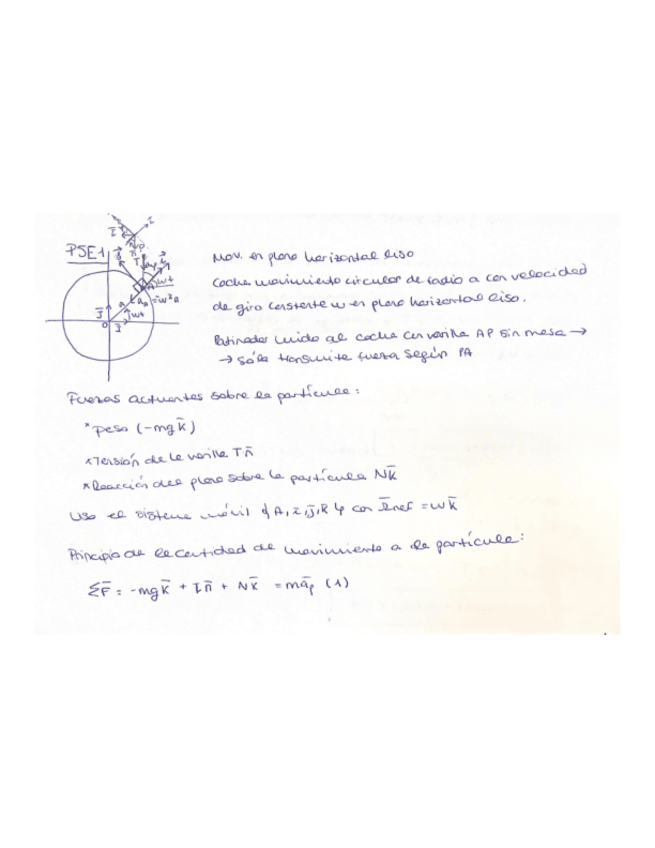 PSE1
Mov. en plano horizontal liso
Coche movimiento circular de radio a con velocidad
de giro constante w en plano horizontal liso.
Patinador unido al coche con varilla AP sin masa →
→ sólo transmite fuerza según PA
Fuerzas actuantes sobre la partícula:
* peso (-mg k̄)
* Tensión de la varilla T n̄
* Reacción del plano sobre la partícula N k̄
Uso el sistema móvil { A, ī, j̄, k̄ } con Ω̄ref = w k̄
Principio de la cantidad de movimiento a la partícula:
Σ F̄ = -mg k̄ + T n̄ + N k̄ = m āp (1)